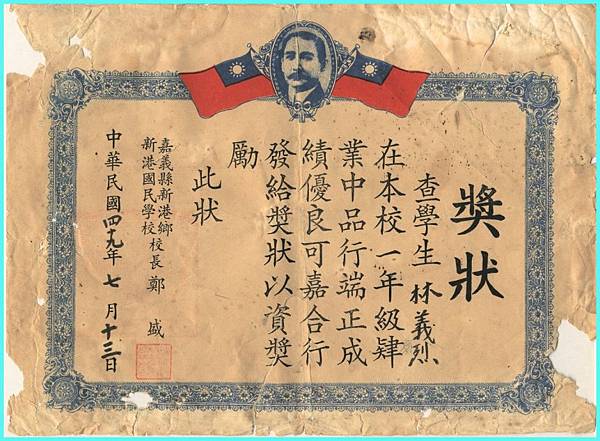 獎狀
查學生 林義烈
在本校一年級肄
業中品行端正成
績優良可嘉合行
發給奬狀以資奬
勵
此狀
嘉義縣新港鄉
新港國民學校
校長鄭 盛
中華民國四九年七月十三日